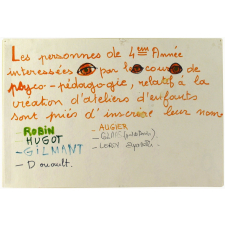 Les personnes de 4ème Année
interessées par les cours de
phyco-pédagogie, relatif à la
creation d'ateliers d'enfants
sont priés d'inscrire leur nom
ROBIN
HUGOT
- GILMANT
- Douault.
- AUGIER
- LEROY